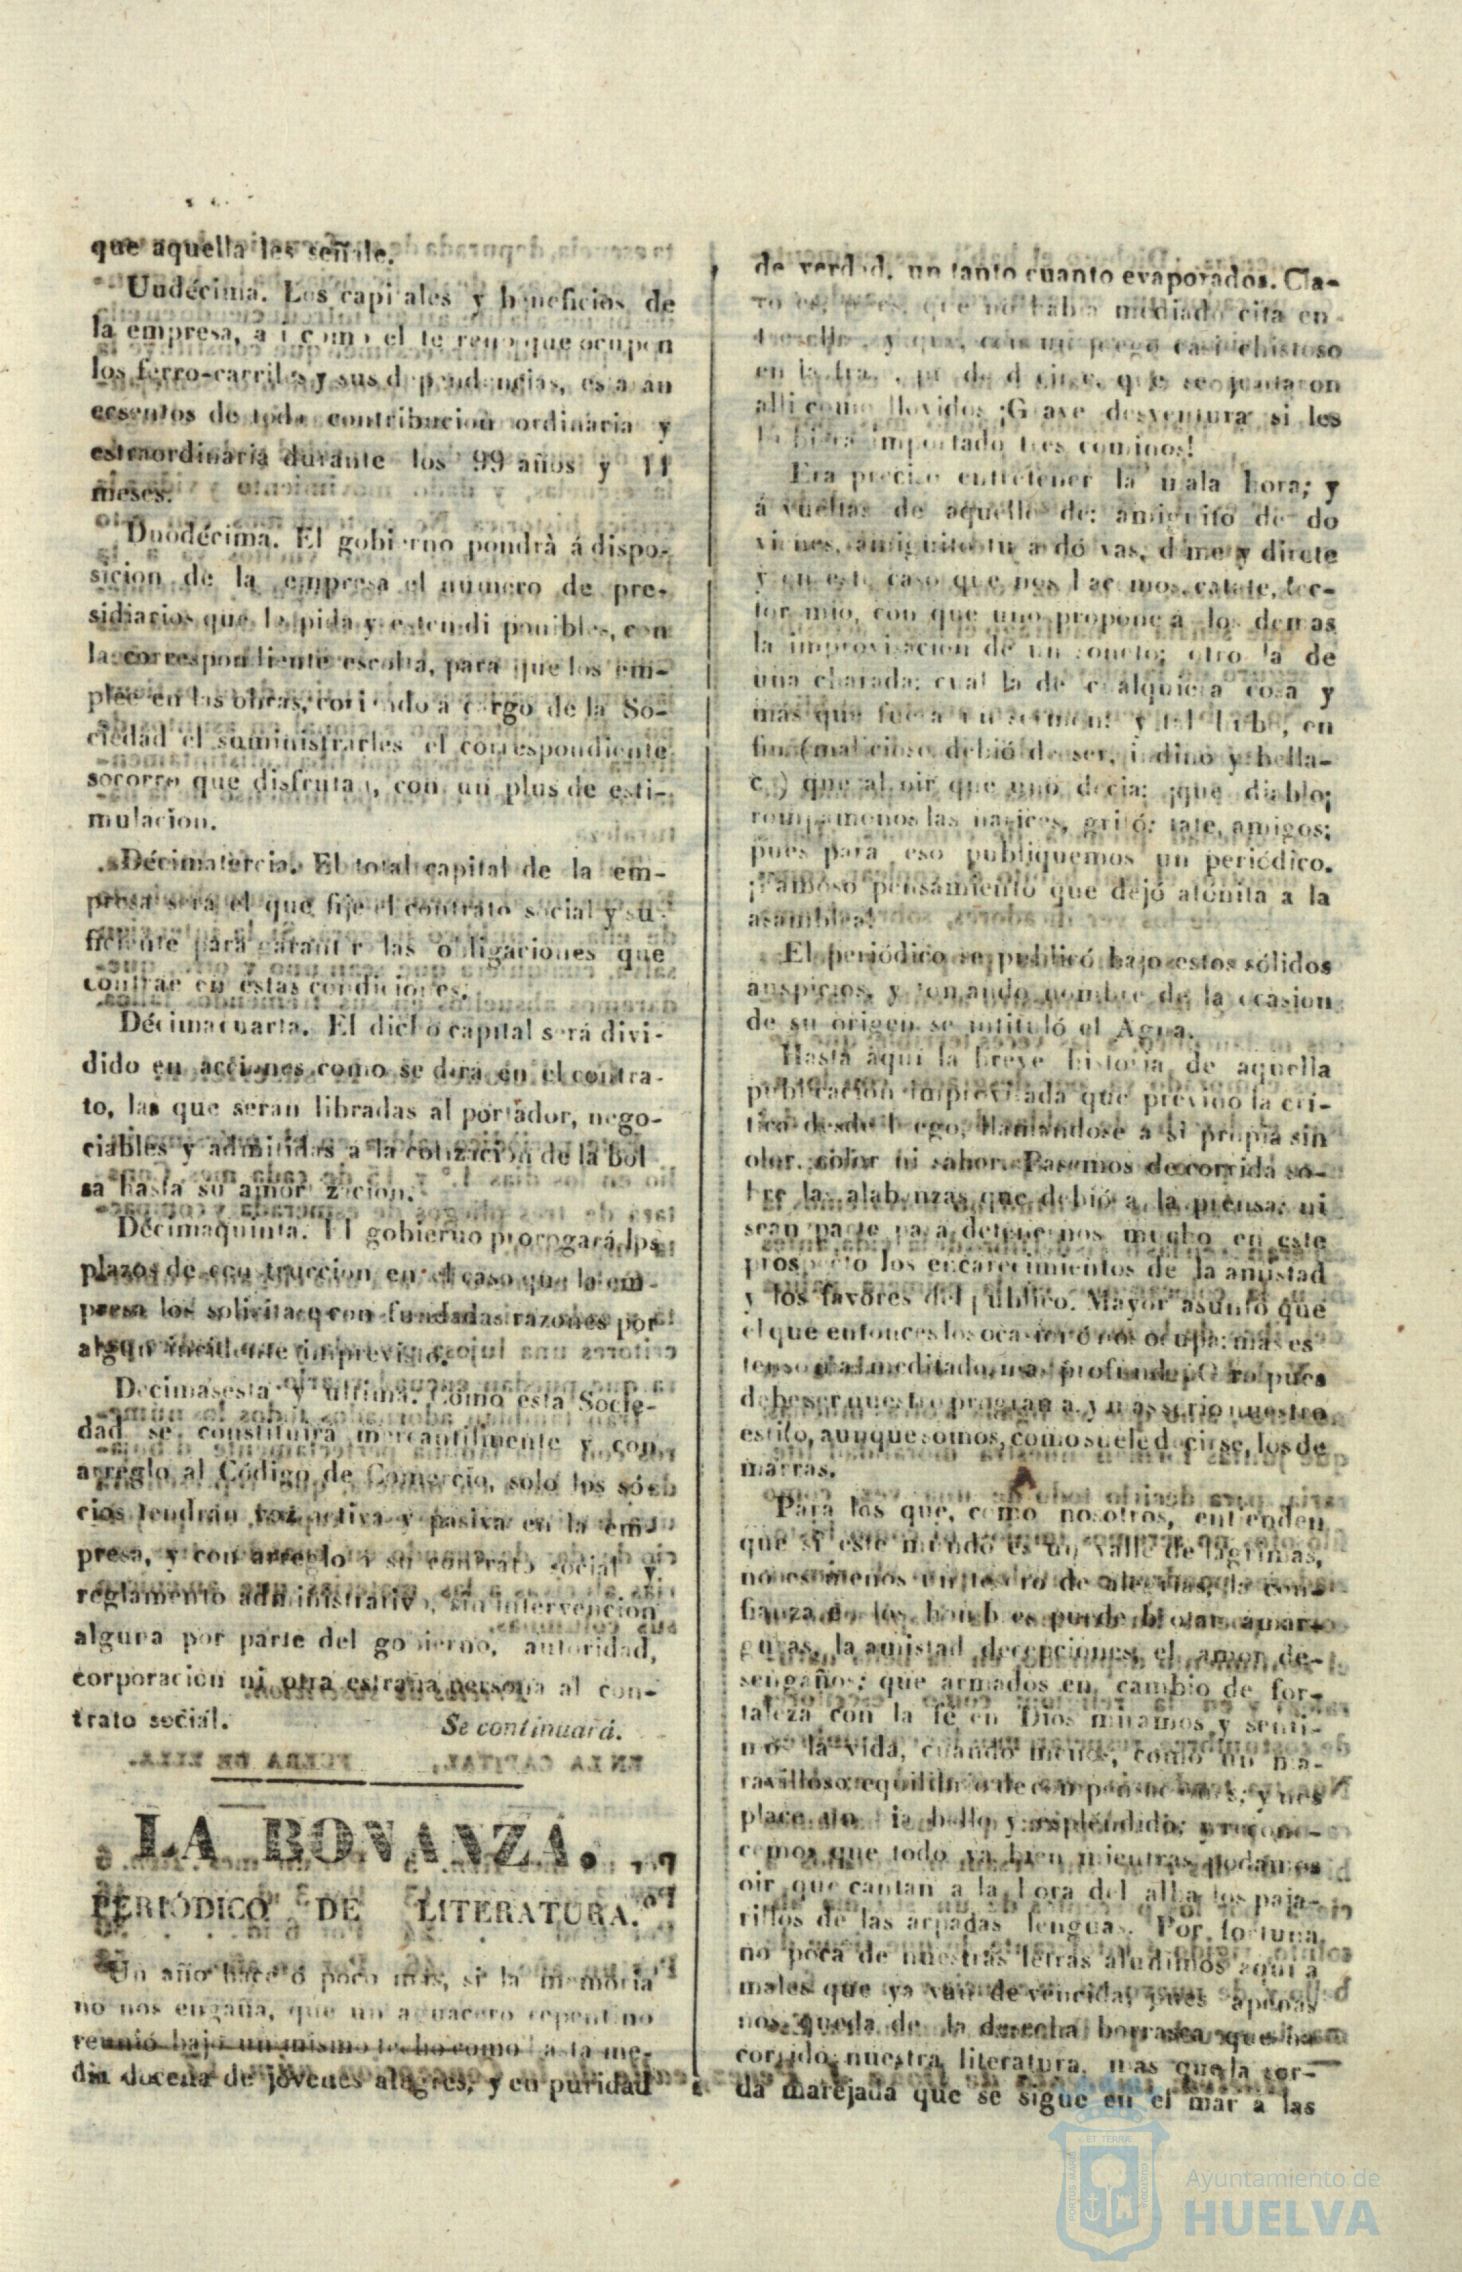 que aquella les señale.
Undécima. Los capitales y beneficios de
la empresa, así como el terreno que ocupen
los ferro-carriles y sus dependencias, estarán
ecsentos de toda contribucion ordinaria y
estraordinaria durante los 99 años y 11
meses.
Duodécima. El gobierno pondrà á dispo-
sicion de la empresa el número de pre-
sidiarios que la pida y esten disponibles, con
la correspondiente escolta, para que los em-
plee en las obras, corriendo a cargo de la So-
ciedad el suministrarles el correspondiente
socorro que disfrutan, con un plus de esti-
mulacion.
Décimatercia. El total capital de la em-
presa será el que fije el contrato social y su-
ficiente para garantir las obligaciones que
contrae en estas condiciones.
Décimacuarta. El dicho capital será divi-
dido en acciones como se dirá en el contra-
to, las que seran libradas al portador, nego-
ciables y admitidas a la cotizacion de la bol
sa hasta su amortizacion.
Décimaquinta. El gobierno prorogará los
plazos de construccion en el caso que la em-
presa los solicitare con fundadas razones por
algun incidente imprevisto.
Decimasesta y última. Como esta Socie-
dad se constituirá mercantilmente y con
arreglo al Código de Comercio, solo los só-
cios tendrán voz activa y pasiva en la em-
presa, y con arreglo a su contrato social y
reglamento administrativo, sin intervencion
alguna por parte del gobierno, autoridad,
corporacion ni otra estraña persona al con-
trato social.
Se continuará.
LA BONANZA.
PERIÓDICO DE LITERATURA.
Un año hace ó poco mas, si la memoria
no nos engaña, que un aguacero repentino
reunió bajo un mismo techo como hasta me-
dia docena de jóvenes alegres, y en puridad
de verdad, un tanto cuanto evaporados. Cla-
ro es, pues, que no habia mediado cita en-
tre ellos, y que, casi chistoso
en la frase, puede decirse, que se juntaron
alli como llovidos ¡Grave desventura si les
hubiera importado tres cominos!
Era preciso entretener la mala hora; y
á vueltas de aquello de: amiguito de do
vienes, amiguito tu a dó vas, dime y direte
y en este caso que nos hacemos, catate, lec-
tor mio, con que uno propone a los demas
la improvisacion de un soneto; otro la de
una charada: cual la de cualquiera cosa y
más que fuera un sermon: y tal hubo, en
fin (malicioso debió de ser, indino y bella-
co) que al oir que uno decia: ¡que diablo;
rompamonos las narices, gritó: tate, amigos;
pues para eso publiquemos un periódico.
¡Famoso pensamiento que dejó atónita a la
asamblea!
El periódico se publicó bajo estos sólidos
auspicios, y tomando nombre de la ocasion
de su origen se intituló el Agua.
Hasta aqui la breve historia de aquella
publicacion improvisada que previno la crí-
tica desde luego, llamándose a si propia sin
olor, color ni sabor. Pasemos de corrida so-
bre las alabanzas que debió a la prensa: ni
sean parte para detenernos mucho en este
prospecto los encarecimientos de la amistad
y los favores del público. Mayor asunto que
el que entonces los ocasionó nos ocupa: mas es
tenso y meditado, mas profundo pues
debe ser nuestro programa, y mas serio nuestro
estilo, aunque somos, como suele decirse, los de
marras.
Para los que, como nosotros, entienden
que si este mundo es un valle de lágrimas,
no es menos un teatro de alegrias; la con-
fianza en los hombres puede brotar amar-
guras, la amistad decepciones, el amor de-
sengaños; que armados en cambio de for-
taleza con la fé en Dios miramos y senti-
mos la vida, cuando menos, como un ma-
ravilloso equilibrio de compensaciones; y nos
place bello y esplendido; y recono-
cemos que todo va bien mientras podamos
oir que cantan a la hora del alba los paja-
rillos de las arpadas lenguas. Por fortuna
no poca de nuestras letras aludimos aqui a
males que ya van de vencida, pues apenas
nos queda de la desecha borrasca que ha
corrido nuestra literatura, mas que la sor-
da marejada que se sigue en el mar a las
PORTUS MARIS
ET TERRÆ
CUSTODIA
Ayuntamiento de
HUELVA